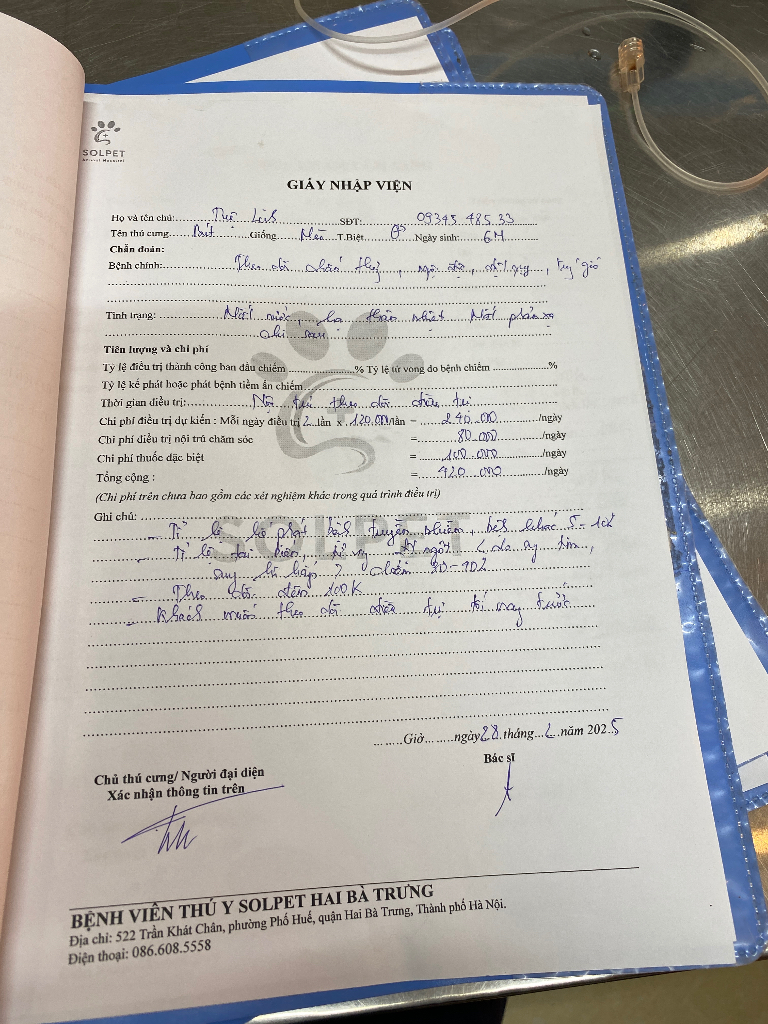 SOLPET
Animal Hospital
GIẤY NHẬP VIỆN
Họ và tên chủ: Linh SĐT: 09345 485 33
Tên thú cưng Giống Mèo T.Biệt Ngày sinh: 6M
Chẩn đoán:
Bệnh chính: Theo dõi chấn thg, ngộ độc, đột quỵ, trụy gió
Tình trạng: Mất nước, hạ thân nhiệt Mất phản xạ
chi sau
Tiên lượng và chi phí
Tỷ lệ điều trị thành công ban đầu chiếm % Tỷ lệ tử vong do bệnh chiếm %
Tỷ lệ kế phát hoặc phát bệnh tiềm ẩn chiếm
Thời gian điều trị: Nội trú theo dõi điều trị
Chi phí điều trị dự kiến : Mỗi ngày điều trị 2 lần x 120.000/lần = 240.000 /ngày
Chi phí điều trị nội trú chăm sóc = 80.000 /ngày
Chi phí thuốc đặc biệt = 100.000 /ngày
Tổng cộng : = 420.000 /ngày
(Chi phí trên chưa bao gồm các xét nghiệm khác trong quá trình điều trị)
Ghi chú:
SOLPET
- Tỉ lệ kế phát bệnh truyền nhiễm, bệnh khác 5-10%
- Tỉ lệ tai biến, đột ngột tim,
suy hô hấp
- Theo dõi đêm 100K
- Khách muốn theo dõi điều trị tối nay trước
Giờ ngày 28 tháng 2 năm 2025
Chủ thú cưng/ Người đại diện
Xác nhận thông tin trên
Bác sĩ
BỆNH VIỆN THÚ Y SOLPET HAI BÀ TRƯNG
Địa chỉ: 522 Trần Khát Chân, phường Phố Huế, quận Hai Bà Trưng, Thành phố Hà Nội.
Điện thoại: 086.608.5558